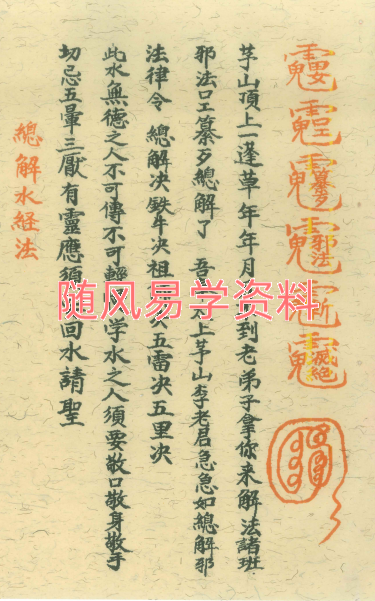 茅山頂上一蓬草年年月到老弟子拿你来解法諸班
邪法口工纂歹總解了吾上茅山李老君急急如總解邪
法律令總解决鉄牛决祖五雷决五里决
此水無德之人不可傳不可輕学水之人須要敬口敬身敬手
切忌五葷三厭有靈應須回水請聖
總解水経法
随风易学资料